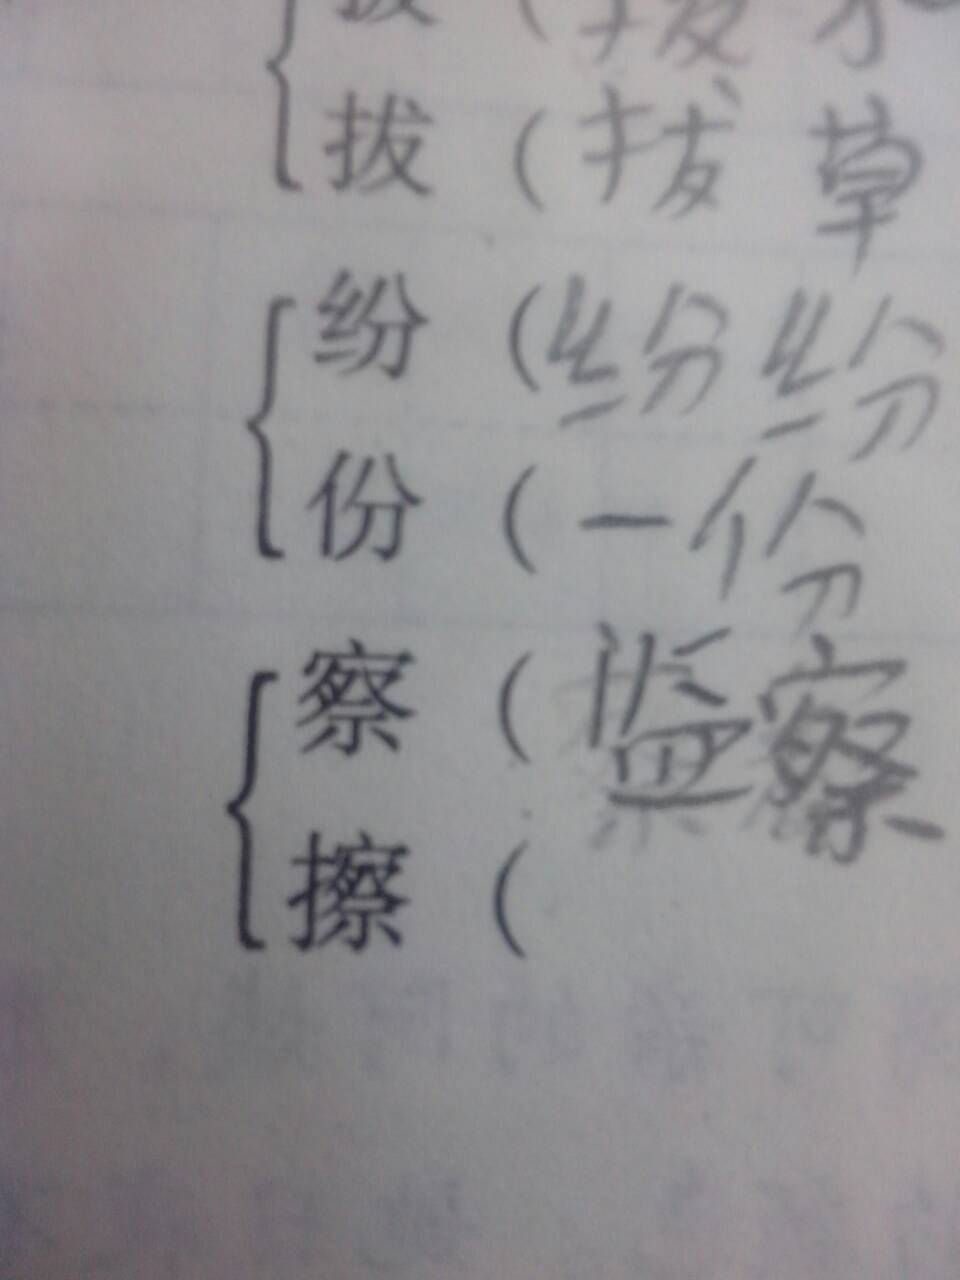 拔（拔草
纷（纷纷
份（一份
察（监察
擦（